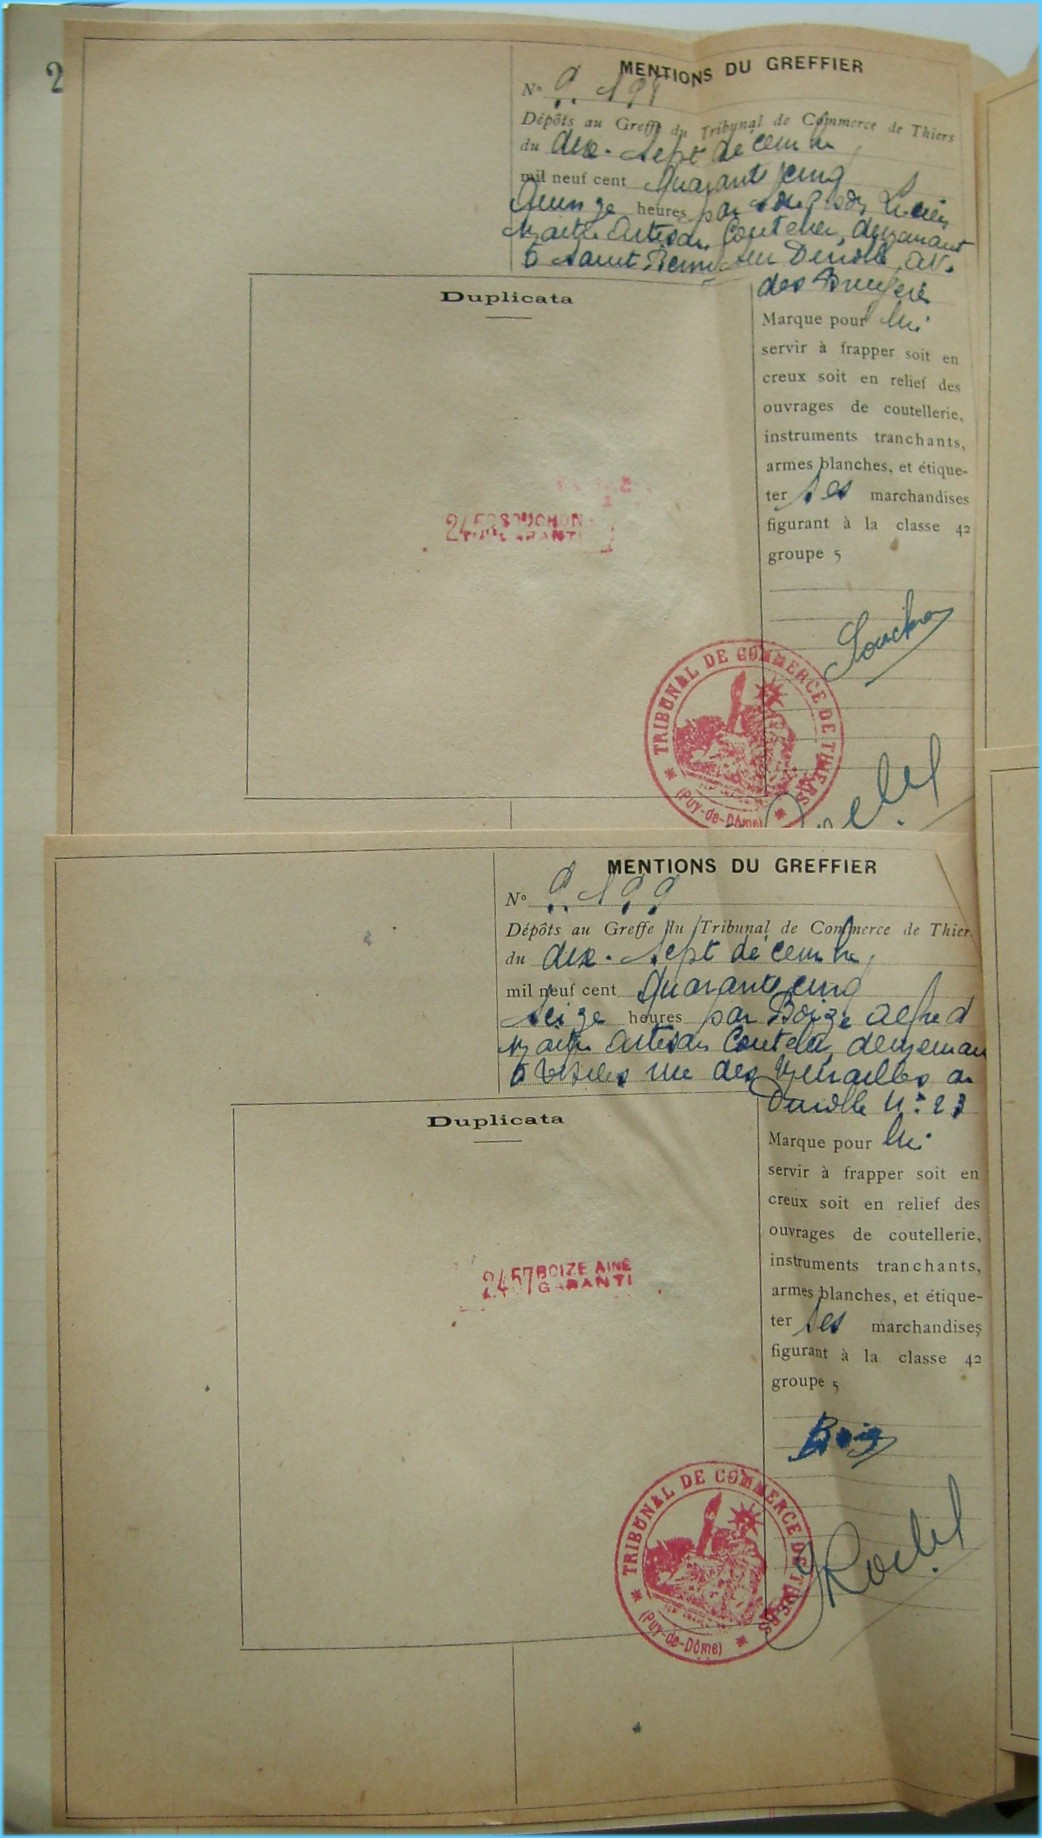 2
MENTIONS DU GREFFIER
Nº 9.198
Dépôts au Greffe du Tribunal de Commerce de Thiers
du dix-sept décembre
mil neuf cent Quarante cinq
Quinze heures par Lucien
Maître Artisan Coutelier, demeurant
à Saint Rémy sur Durolle, av.
des
Duplicata
Marque pour lui
servir à frapper soit en
creux soit en relief des
ouvrages de coutellerie,
instruments tranchants,
armes blanches, et étique-
ter ses marchandises
figurant à la classe 42
groupe 5
SOUCHON
GARANTI
Souchon
TRIBUNAL DE COMMERCE DE THIERS
(Puy-de-Dôme)
MENTIONS DU GREFFIER
Nº 9.199
Dépôts au Greffe du Tribunal de Commerce de Thier
du dix-sept décembre
mil neuf cent Quarante cinq
Seize heures par Boize Alfred
Maître Artisan Coutelier, demeurant
à rue des Murailles
Durolle Nº 23
Duplicata
Marque pour lui
servir à frapper soit en
creux soit en relief des
ouvrages de coutellerie,
instruments tranchants,
armes blanches, et étique-
ter ses marchandises
figurant à la classe 42
groupe 5
2457 BOIZE AINE
GARANTI
Boize
TRIBUNAL DE COMMERCE DE THIERS
(Puy-de-Dôme)